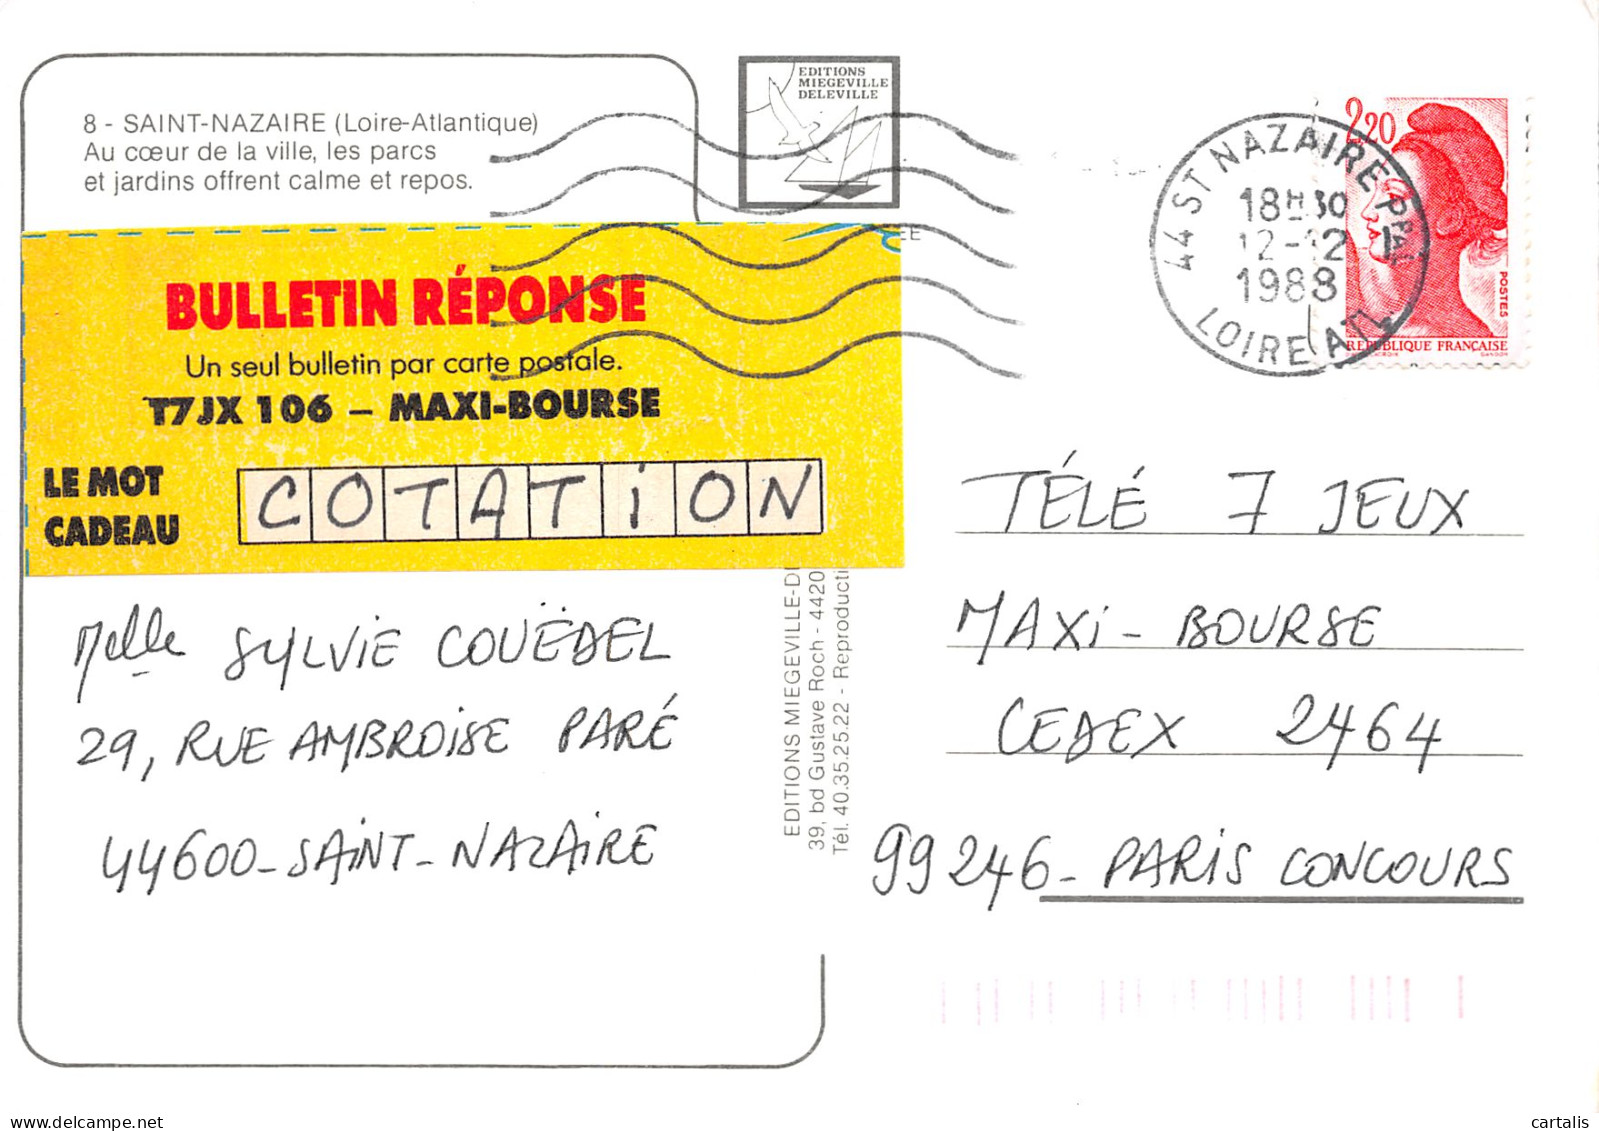 8 - SAINT-NAZAIRE (Loire-Atlantique)
Au cœur de la ville, les parcs
et jardins offrent calme et repos.
EDITIONS
MIEGEVILLE
DELEVILLE
44 ST NAZAIRE PPAL
18H30
12-12
1988
LOIRE ATL.
2,20
POSTES
REPUBLIQUE FRANÇAISE
BULLETIN RÉPONSE
Un seul bulletin par carte postale.
T7JX 106 – MAXI-BOURSE
LE MOT
CADEAU
COTATiON
Melle SYLVIE COUËDEL
29, RUE AMBROiSE PARÉ
44600-SAiNT-NAZAiRE
EDITIONS MIEGEVILLE-D
39, bd Gustave Roch - 4420
Tél. 40.35.25.22 - Reproducti
TÉLÉ 7 JEUX
MAXi-BOURSE
CEDEX 2464
99246-PARiS CONCOURS
cartalis